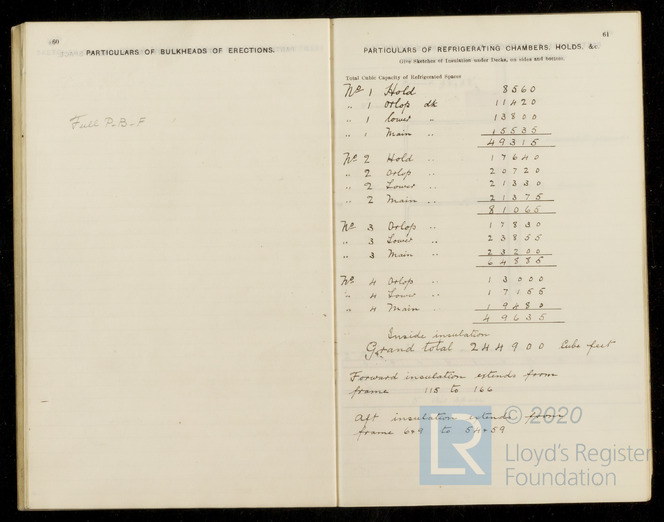 60
PARTICULARS OF BULKHEADS OF ERECTIONS.
Full P-B-F
61
PARTICULARS OF REFRIGERATING CHAMBERS, HOLDS, &c.
Give Sketches of Insulation under Decks, on sides and bottom.
Total Cubic Capacity of Refrigerated Spaces
No 1 Hold 8560
" 1 Orlop dk 11420
" 1 Lower " 13800
" 1 Main " 15535
49315
No 2 Hold " 17640
" 2 Orlop " 20720
" 2 Lower " 21330
" 2 Main " 21375
81065
No 3 Orlop " 17830
" 3 Lower " 23855
" 3 Main " 23200
64885
No 4 Orlop " 13000
" 4 Lower " 17155
" 4 Main " 19480
49635
Inside insulation
Grand total 244900 Cube feet
Forward insulation extends from
frame 115 to 166
Aft insulation extends from
frame to
© 2020
LR
Lloyd's Register
Foundation